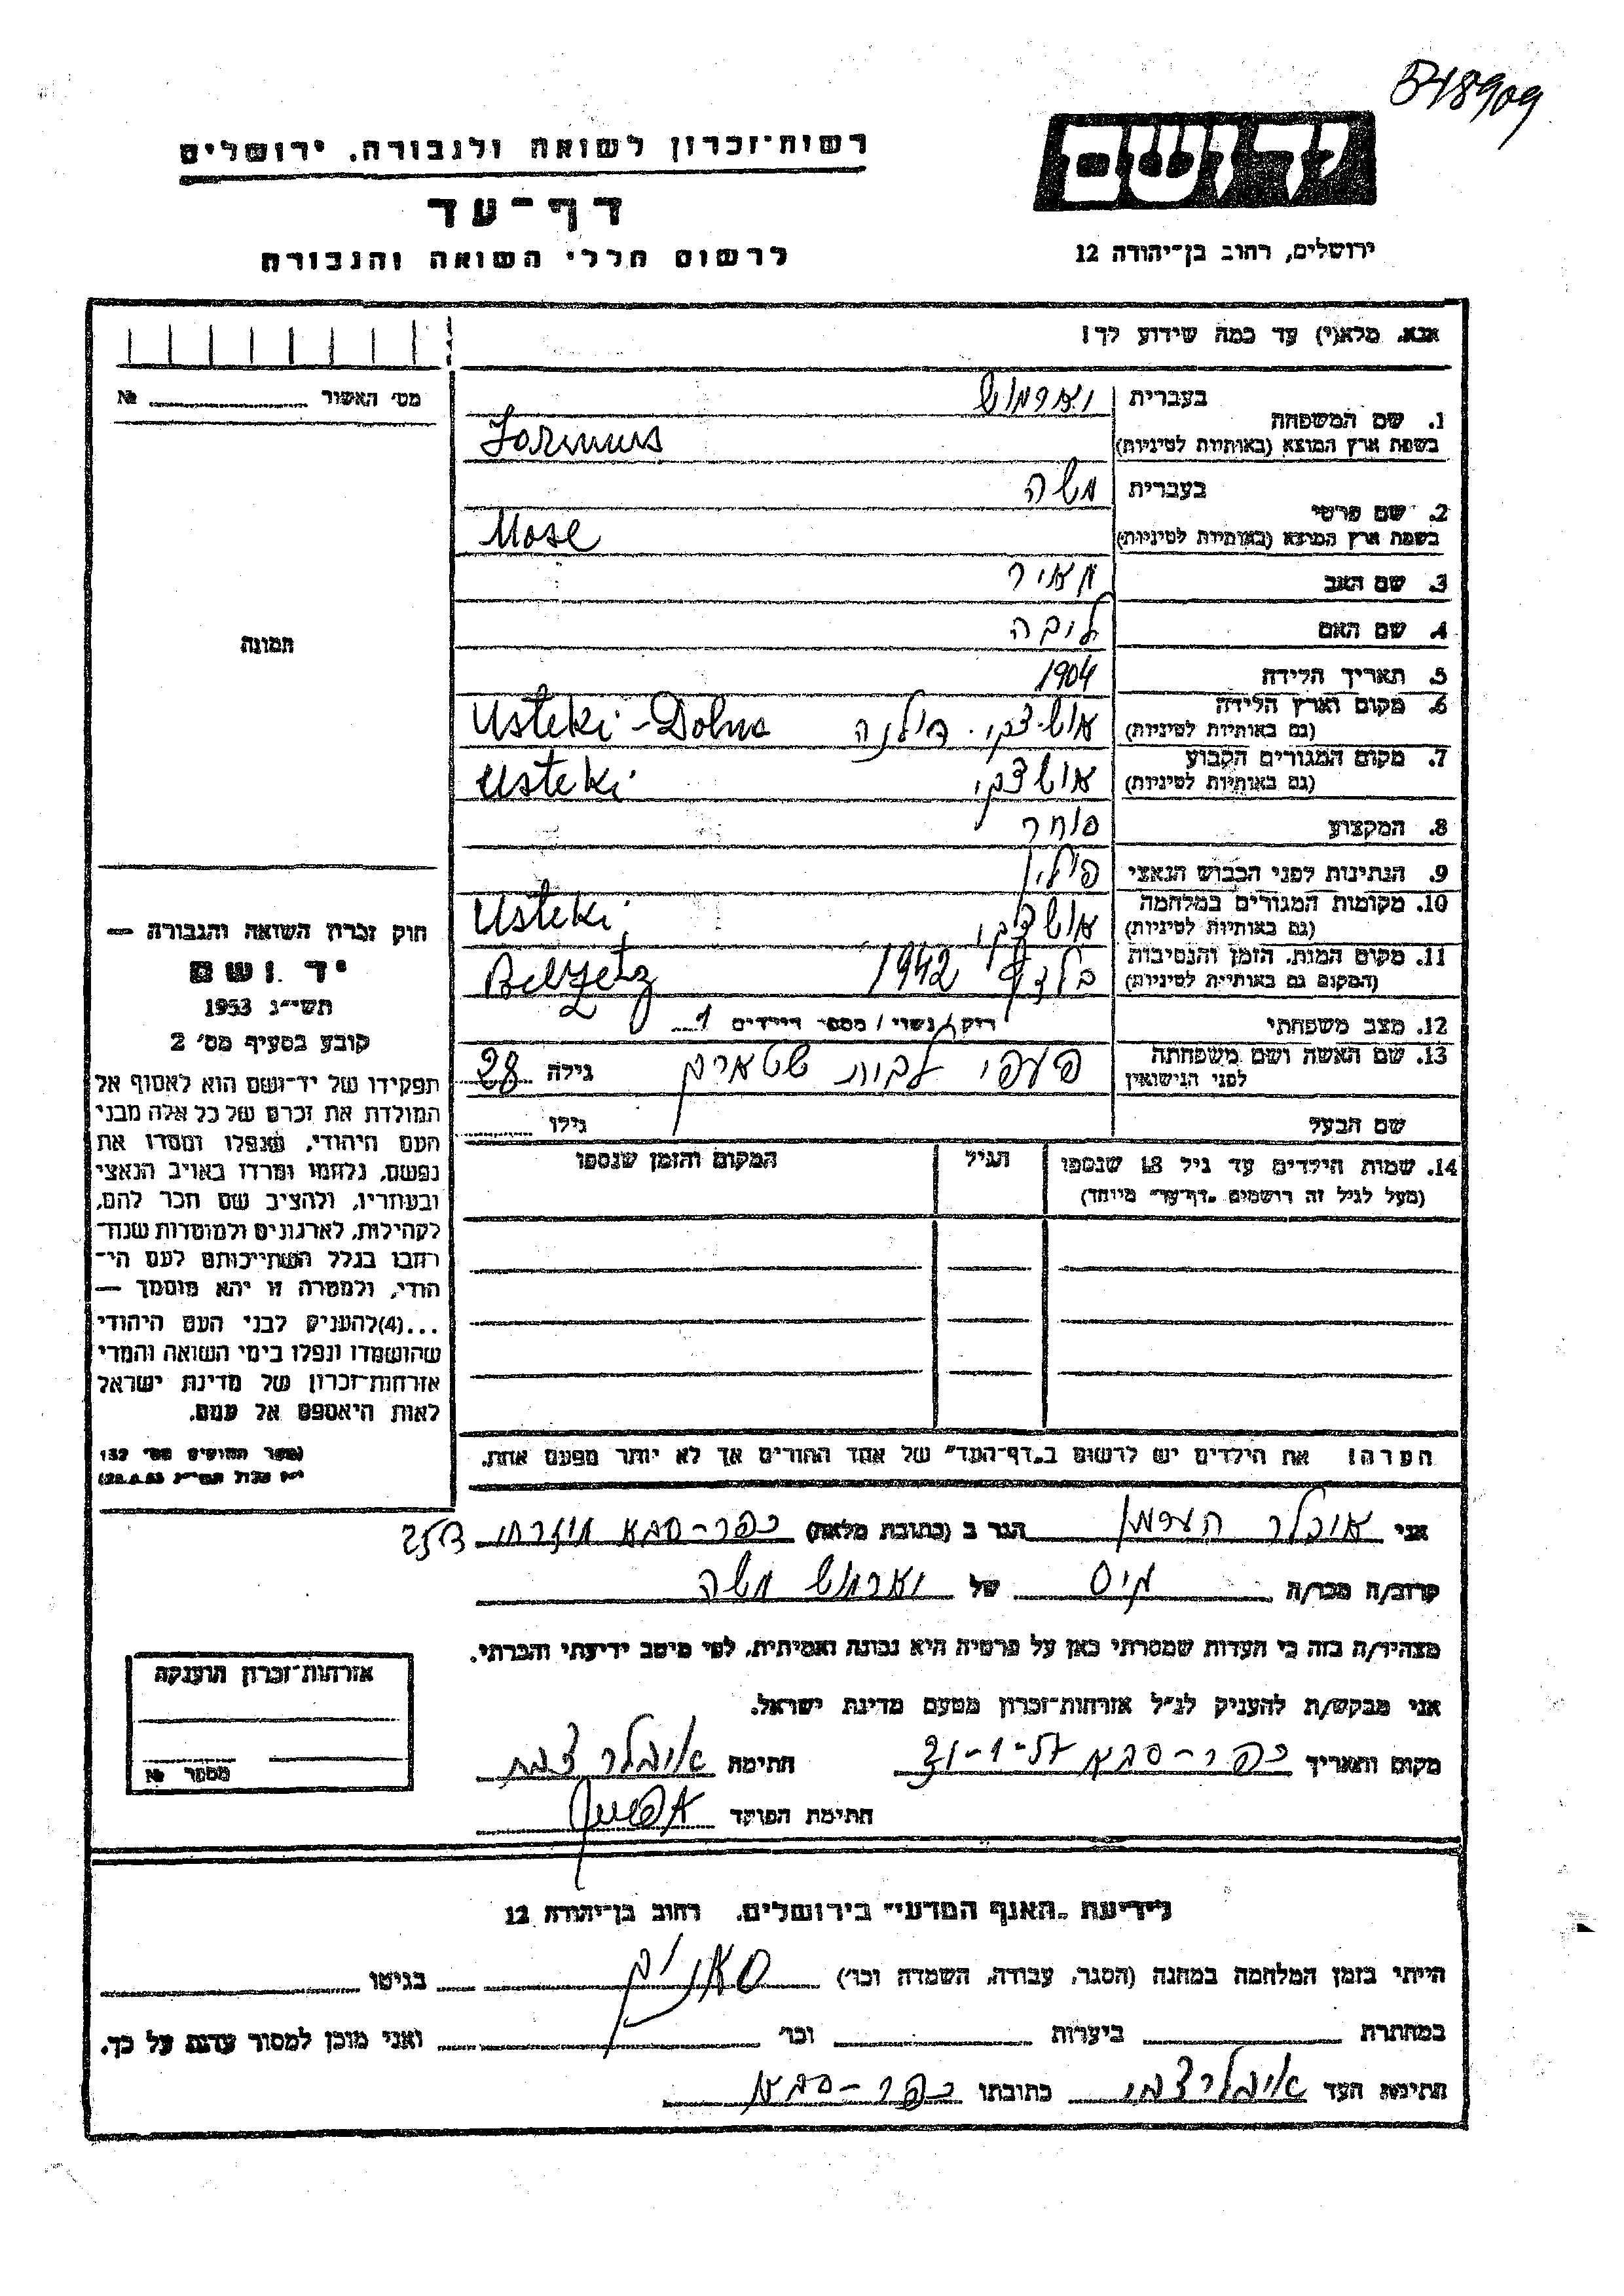 548909
רשות־זכרון לשואה ולגבורה. ירושלים
יד ושם
דף־עד
ירושלים, רחוב בן־יהודה 12
לרשום חללי השואה והגבורה
אנא, מלא(י) עד כמה שידוע לך!
מס׳ האשור № 
1. שם המשפחה
בעברית
בשפת ארץ המוצא (באותיות לטיניות)
2. שם פרטי
בעברית משה
בשפת ארץ המוצא (באותיות לטיניות) Mose
3. שם האב מאיר
תמונה
4. שם האם ליבה
5. תאריך הלידה 1904
6. מקום וארץ הלידה
(גם באותיות לטיניות) אוסטצקי דולנה Usteki-Dolna
7. מקום המגורים הקבוע
(גם באותיות לטיניות) Usteki
8. המקצוע סוחר
9. הנתינות לפני הכבוש הנאצי פולין
10. מקומות המגורים במלחמה
(גם באותיות לטיניות) Usteki
11. מקום המות, הזמן והנסיבות
(המקום גם באותיות לטיניות) בלזץ 1942 Belzetz
12. מצב משפחתי רוק/נשוי/מספר הילדים 1
13. שם האשה ושם משפחתה
לפני הנישואין לבית גילה 28
שם הבעל גילו
14. שמות הילדים עד גיל 18 שנספו
(מעל לגיל זה רושמים „דף־עד״ מיוחד)
הגיל
המקום והזמן שנספו
הערה! את הילדים יש לרשום ב„דף־העד״ של אחד ההורים אך לא יותר מפעם אחת.
חוק זכרון השואה והגבורה —
יד ושם
תשי״ג 1953
קובע בסעיף מס׳ 2
תפקידו של יד־ושם הוא לאסוף אל
המולדת את זכרם של כל אלה מבני
העם היהודי, שנפלו ומסרו את
נפשם, נלחמו ומרדו באויב הנאצי
ובעוזריו, ולהציב שם וזכר להם,
לקהילות, לארגונים ולמוסדות שנח־
רבו בגלל השתייכותם לעם הי־
הודי, ולמטרה זו יהא מוסמך —
...(4) להעניק לבני העם היהודי
שהושמדו ונפלו בימי השואה והמרי
אזרחות־זכרון של מדינת ישראל
לאות היאספם אל עמם.
(ספר החוקים מס׳ 132
אני הגר ב (כתובת מלאה) כפר-סבא
קרוב/ה מכר/ה של משה
מצהיר/ה בזה כי העדות שמסרתי כאן על פרטיה היא נכונה ואמיתית, לפי מיטב ידיעתי והכרתי.
אני מבקש/ת להעניק לנ״ל אזרחות־זכרון מטעם מדינת ישראל.
מקום ותאריך כפר-סבא 31-1-57 חתימה
חתימת הפוקד
אזרחות־זכרון הוענקה
מספר №
לידיעת „האגף המדעי״ בירושלים, רחוב בן־יהודה 12
הייתי בזמן המלחמה במחנה (הסגר, עבודה, השמדה וכו׳) בגיטו
במחתרת ביערות וכו׳ ואני מוכן למסור עדות על כך.
חתימת העד כתובתו כפר-סבא